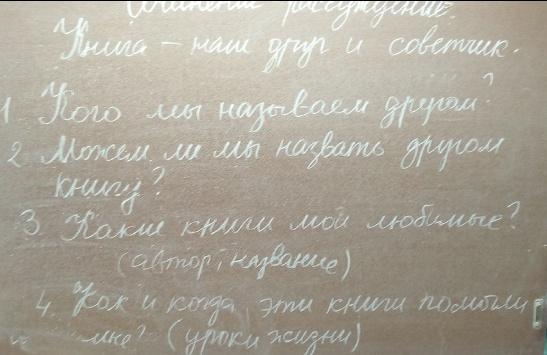 Сочинение рассуждение.
Книга – наш друг и советчик.
1 Кого мы называем другом?
2 Можем ли мы назвать другом
книгу?
3 Какие книги мои любимые?
(автор, название)
4. Как и когда эти книги помогли
мне? (уроки жизни)